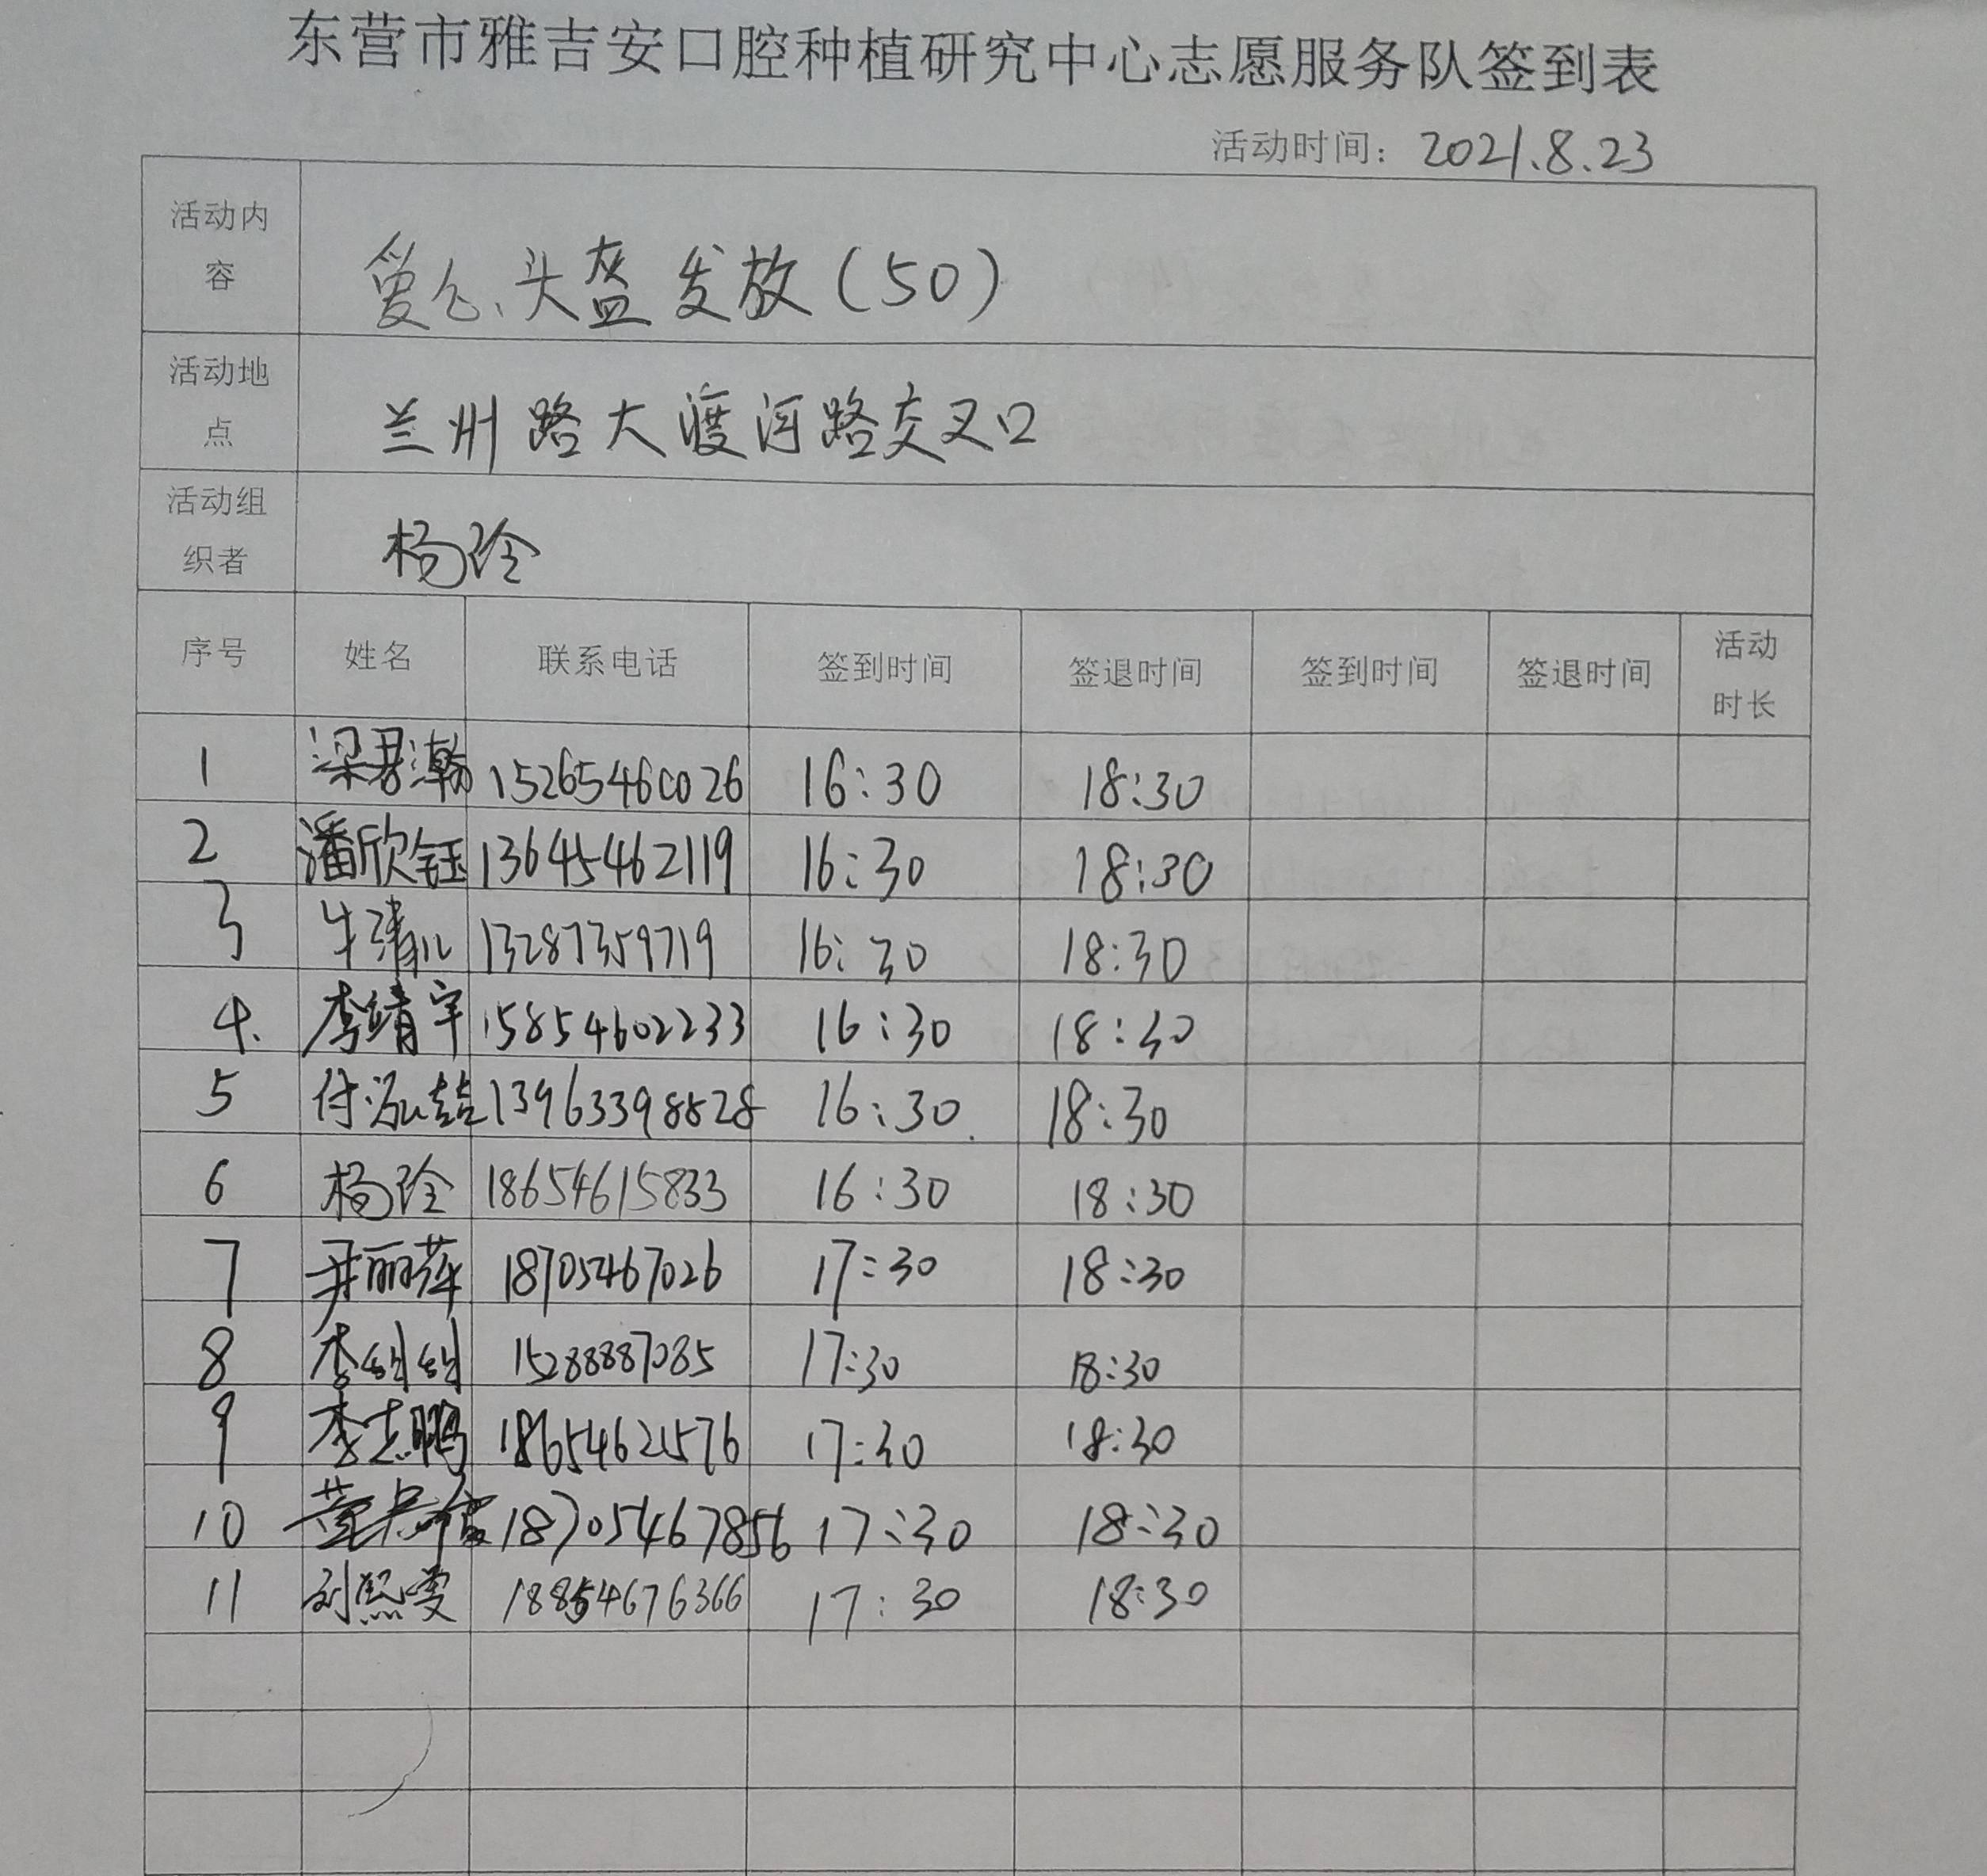 东营市雅吉安口腔种植研究中心志愿服务队签到表
活动时间：2021.8.23
活动内容 爱心头盔发放(50)
活动地点 兰州路大渡河路交叉口
活动组织者 杨玲
序号 姓名 联系电话 签到时间 签退时间 签到时间 签退时间 活动时长
1 梁君瀚 15265460026 16:30 18:30
2 潘欣钰 13645462119 16:30 18:30
3 13287359719 16:30 18:30
4. 李靖宇 15854602233 16:30 18:30
5 付泓喆 13963398828 16:30 18:30
6 杨玲 18654615833 16:30 18:30
7 尹丽萍 18705467026 17:30 18:30
8 李娟娟 15288887085 17:30 18:30
9 李志鹏 18654621576 17:30 18:30
10 18705467856 17:30 18:30
11 刘熙雯 18854676366 17:30 18:30